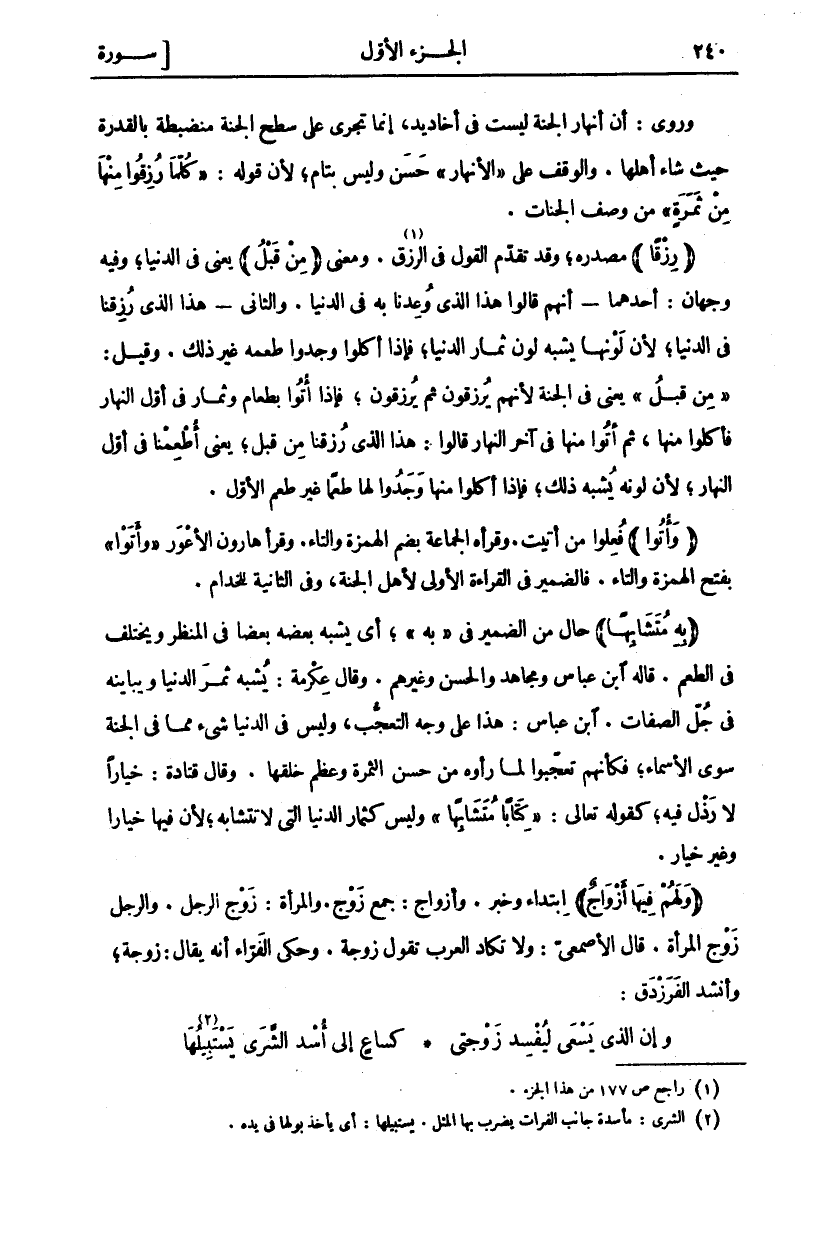 ٢٤٠ الجـــزء الأوّل [ ســـورة
وروى : أن أنهار الجنة ليست فى أخاديد، إنما تجرى على سطح الجنة منضبطة بالقدرة
حيث شاء أهلها . والوقف على «الأنهار» حَسَن وليس بتام؛ لأن قوله : «كُلَّمَا رُزِقُوا مِنْهَا
مِنْ ثَمَرَةٍ» من وصف الجنات .
﴿ رِزْقًا ﴾ مصدره؛ وقد تقدّم القول فى الرزق (١) . ومعنى ﴿ مِنْ قَبْلُ ﴾ يعنى فى الدنيا؛ وفيه
وجهان : أحدهما — أنهم قالوا هذا الذى وُعدنا به فى الدنيا . والثانى — هذا الذى رُزِقنا
فى الدنيا؛ لأن لَوْنهـا يشبه لون ثمـار الدنيا؛ فإذا أكلوا وجدوا طعمه غير ذلك . وقيـل :
« مِن قبـلُ » يعنى فى الجنة لأنهم يُرزقون ثم يُرزقون ؛ فإذا أُتُوا بطعام وثمـار فى أوّل النهار
فأكلوا منها ، ثم أتُوا منها فى آخر النهار قالوا : هذا الذى رُزقنا مِن قبل؛ يعنى أُطْعِمْنا فى أوّل
النهار ؛ لأن لونه يُشبه ذلك؛ فإذا أكلوا منها وَجَدُوا لها طعمًا غير طعم الأوّل .
﴿ وَأُتُوا ﴾ فُعِلوا من أتيت. وقرأه الجماعة بضم الهمزة والتاء. وقرأ هارون الأعْوَر «وأَتَوْا»
بفتح الهمزة والتاء . فالضمير فى القراءة الأولى لأهل الجنة، وفى الثانية للخدام .
﴿بِهِ مُتَشَابِهًـا﴾ حال من الضمير فى « به » ؛ أى يشبه بعضه بعضا فى المنظر ويختلف
فى الطعم . قاله آبن عباس ومجاهد والحسن وغيرهم . وقال عِكْرمة : يُشبه ثمـرَ الدنيا ويباينه
فى جُلّ الصفات . آبن عباس : هذا على وجه التعجُّب، وليس فى الدنيا شىء ممـا فى الجنة
سوى الأسماء؛ فكأنهم تعجّبوا لمـا رأوه من حسن الثمرة وعظم خلقها . وقال قتادة : خياراً
لا رَذْل فيه؛ كقوله تعالى : «كِتَابًا مُتَشَابِهًا» وليس كثمار الدنيا التى لا تتشابه ؛لأن فيها خيارا
وغير خيار .
﴿وَلَهُمْ فِيهَا أَزْوَاجٌ﴾ ابتداء وخبر . وأزواج : جمع زَوْج. والمرأة : زَوْج الرجل . والرجل
زَوْج المرأة . قال الأصمعىّ : ولا تكاد العرب تقول زوجة . وحكى الفَرّاء أنه يقال : زوجة؛
وأنشد الفَرَزْدَق :
و إن الذى يَسْعَى لِيُفْسِد زَوْجتى * كساعٍ إلى أُسْد الشَّرَى يَسْتَبِيلُهَا (٢)
(١) راجع ص ١٧٧ من هذا الجزء .
(٢) الشرى : مأسدة جانب الفرات يضرب بها المثل . يستبيلها : أى يأخذ بولها فى يده .